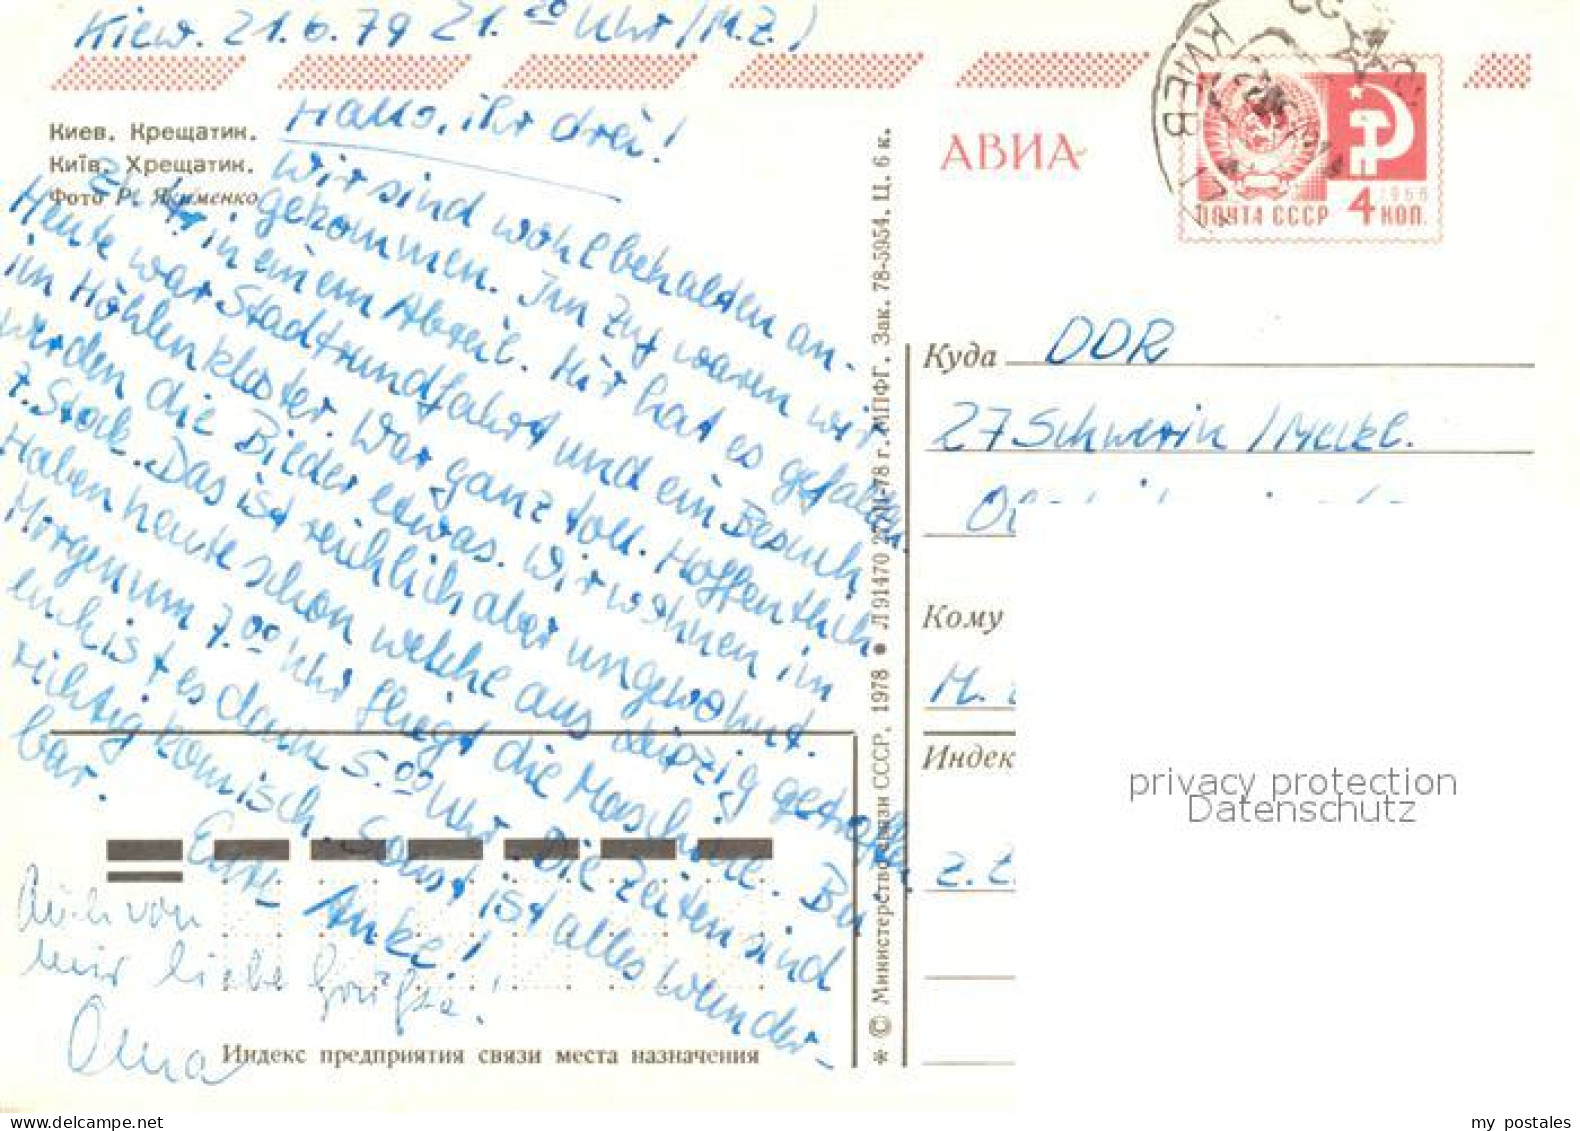 Kiew. 21.6.79 21.20 Uhr (M.Z.)
Киев. Крещатик.
Київ. Хрещатик.
Фото Р. Якименко
Hallo, ihr drei!
Wir sind wohlbehalten an-
gekommen. Im Zug waren wir
in einem Abteil. Mir hat es gefallen.
Heute war Stadtrundfahrt und ein Besuch
im Höhlenkloster. War ganz toll. Hoffentlich
werden die Bilder etwas. Wir wohnen im
7. Stock. Das ist reichlich aber ungewohnt.
Haben heute schon welche aus Leipzig getroffen.
Morgen um 7.00 Uhr fliegt die Maschine. Bei
euch ist es dann 5.00 Uhr. Die Zeiten sind
richtig komisch. Sonst ist alles wunder-
bar.
Eure Anke!
Auch von
mir liebe Grüße!
Oma
Индекс предприятия связи места назначения
✳ © Министерство связи СССР, 1978 ● Л 91470 78 г. МПФГ. Зак. 78-5954. Ц. 6 к.
АВИА
КИЕВ
ПОЧТА СССР 4 КОП.
1966
Куда DDR
27 Schwerin / Meckl.
Кому
M.
Индек
privacy protection
Datenschutz
my postales